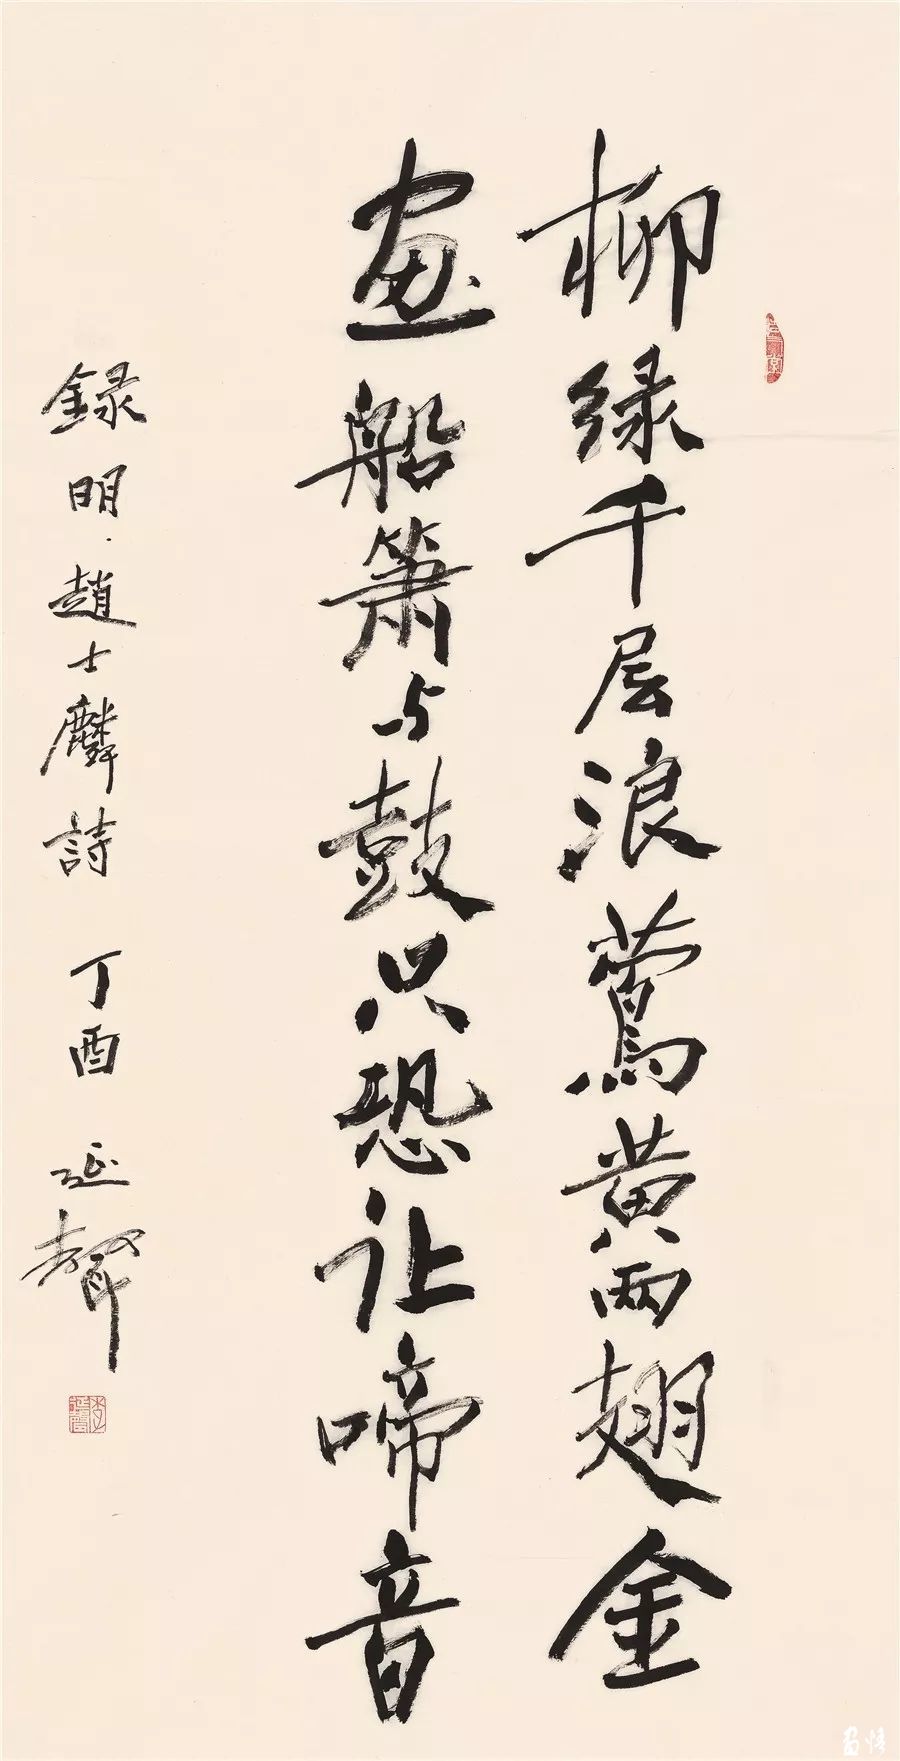 柳绿千层浪莺黄两翅金
画船箫与鼓只恐让啼音
録明·趙士麟詩 丁酉 延聲